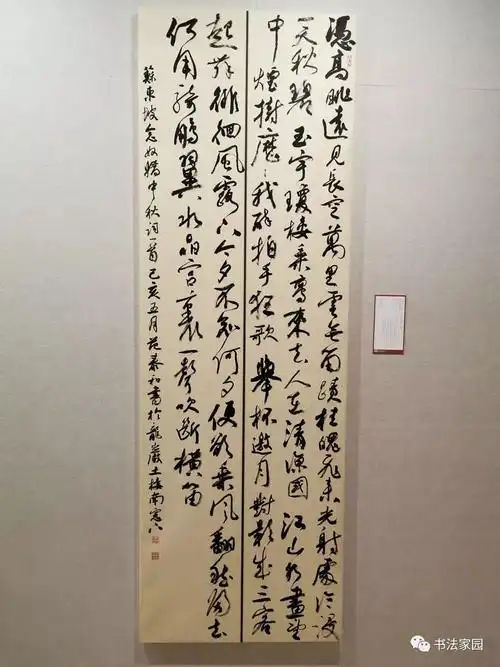 憑高眺遠見長空萬里雲無留蹟桂魄飛來光射處冷浸
一天秋碧玉宇瓊樓乘鸞來去人在清涼國江山如畫望
中煙樹歷々我醉拍手狂歌舉杯邀月對影成三客
起舞徘徊風露下今夕不知何夕便欲乘風翻然歸去
何用騎鵬翼水晶宮裏一聲吹斷橫笛
蘇東坡念奴嬌中秋詞一首己亥五月范泰和書於龍巖土樓南窗下
书法家园